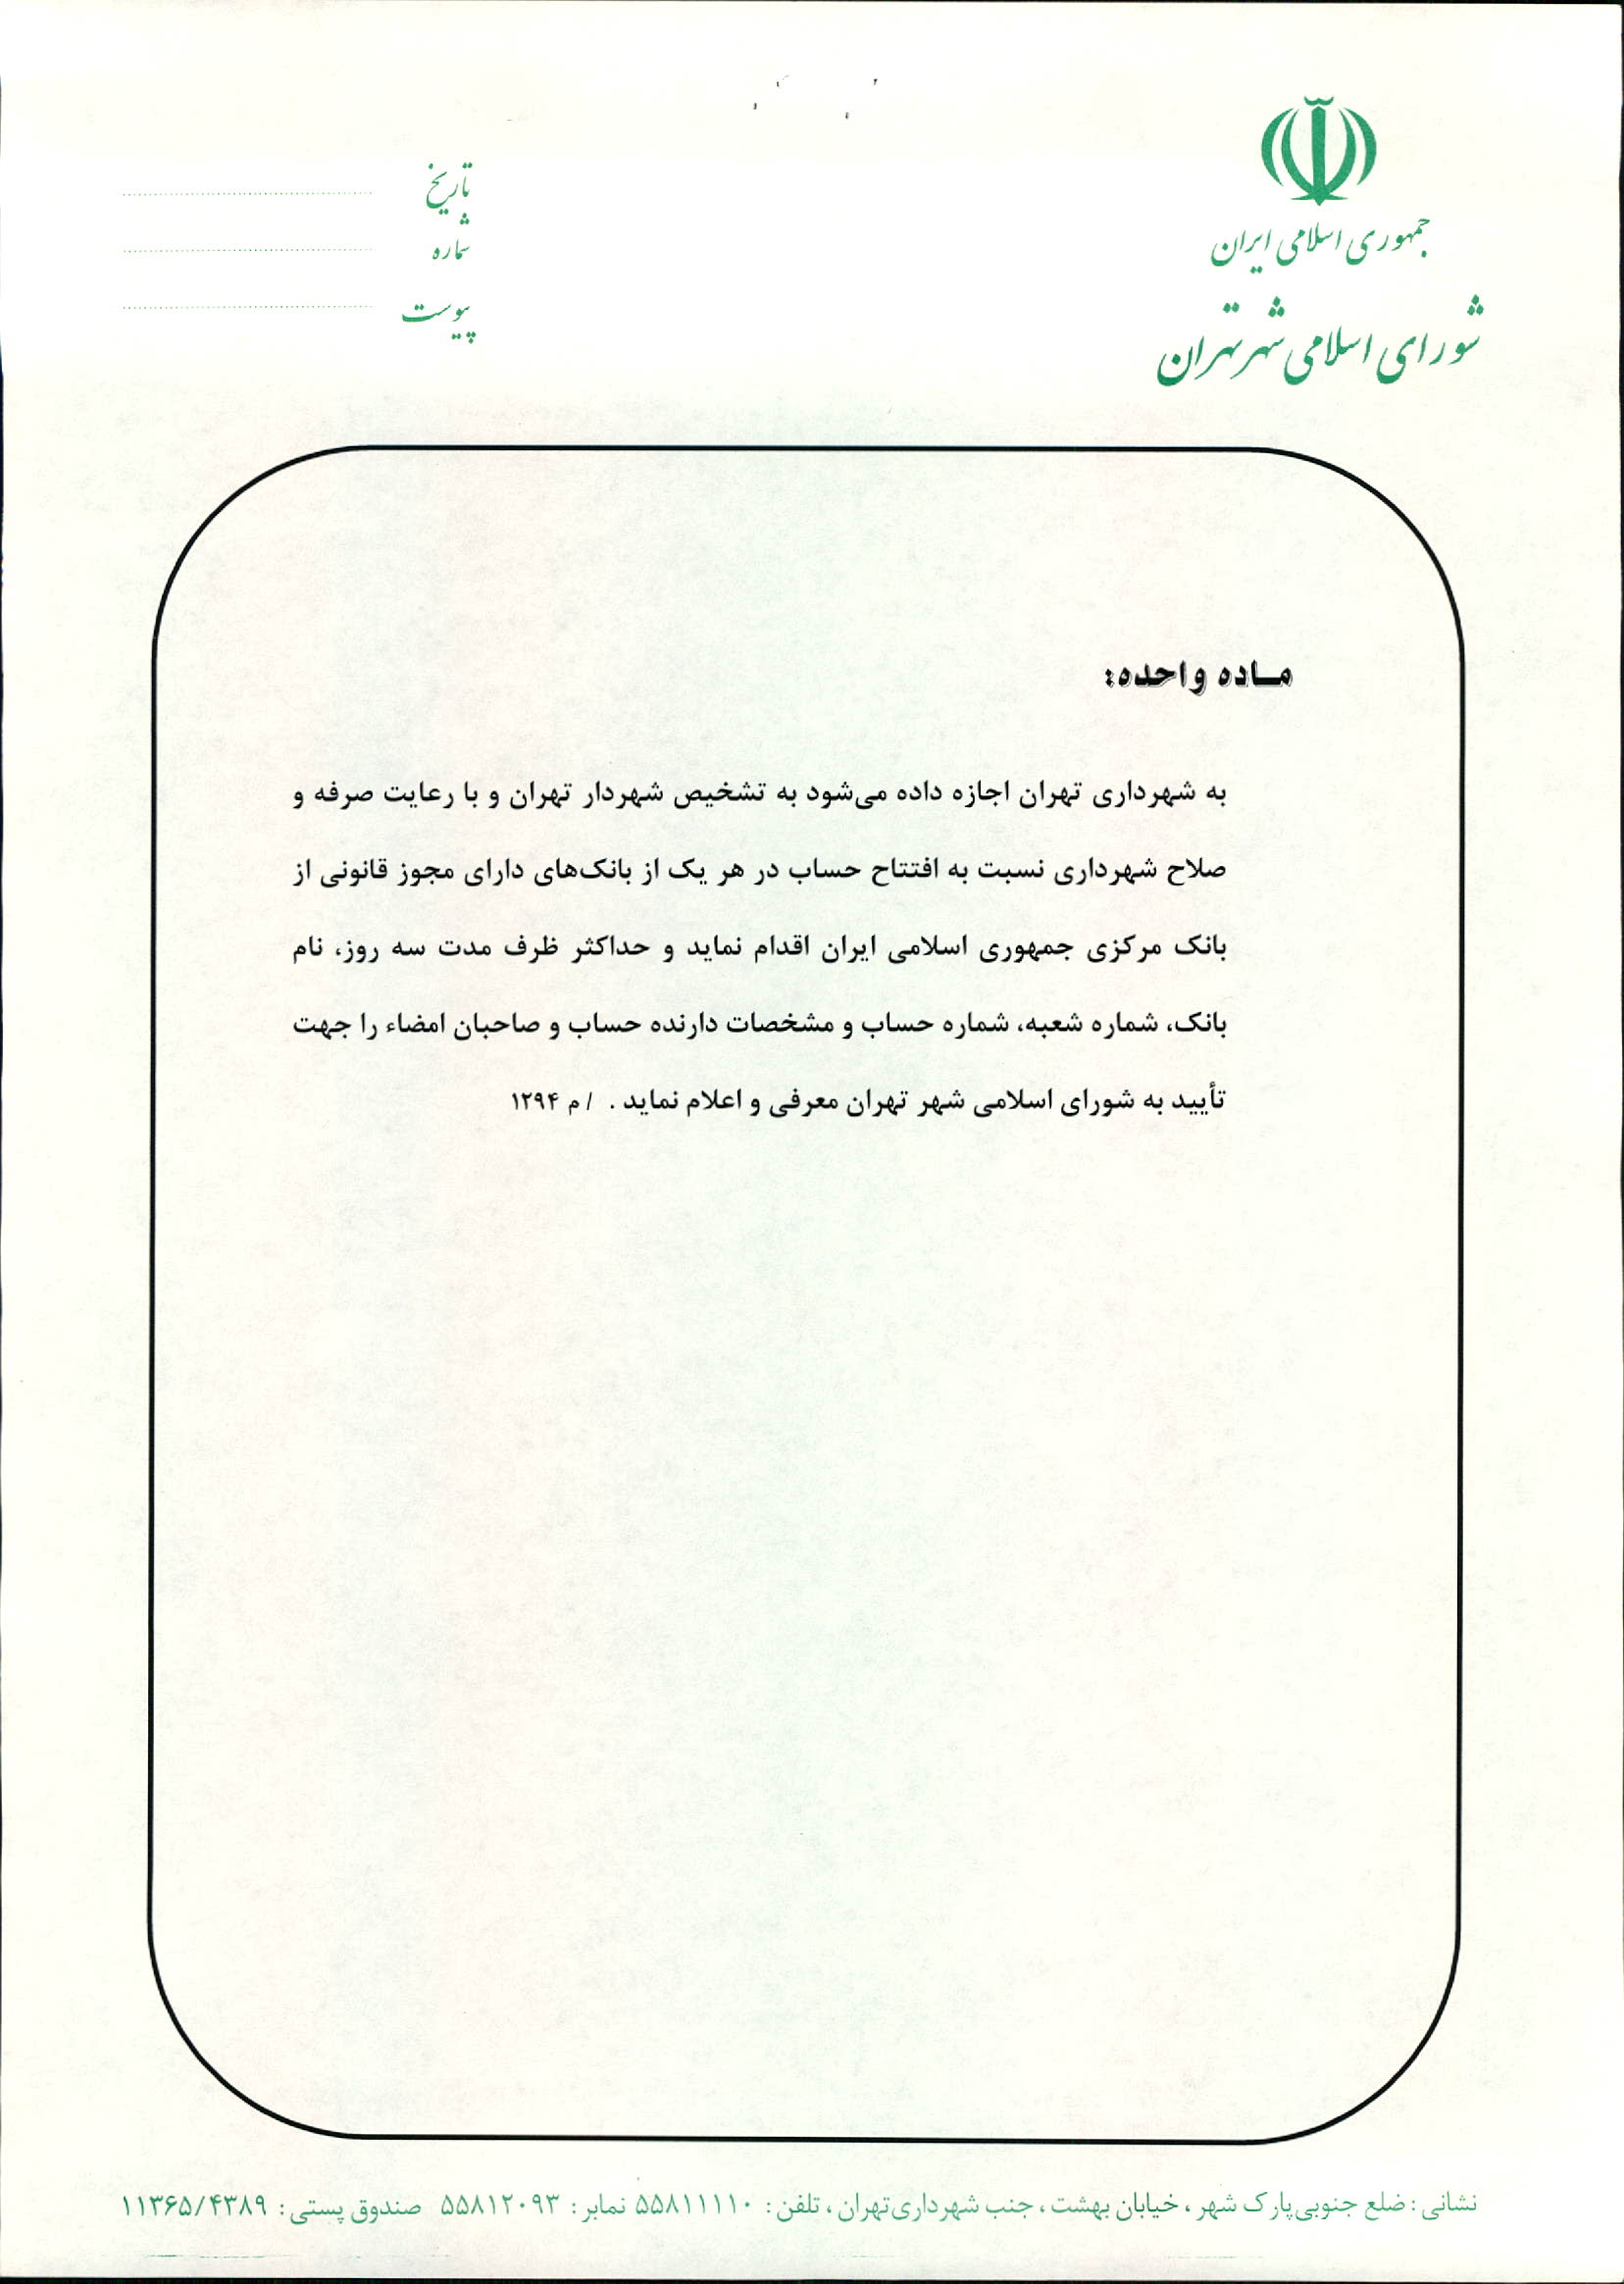 جمهوری اسلامی ایران
شورای اسلامی شهر تهران
تاریخ
شماره
پیوست
مـاده واحده:
به شهرداری تهران اجازه داده می‌شود به تشخیص شهردار تهران و با رعایت صرفه و
صلاح شهرداری نسبت به افتتاح حساب در هر یک از بانک‌های دارای مجوز قانونی از
بانک مرکزی جمهوری اسلامی ایران اقدام نماید و حداکثر ظرف مدت سه روز، نام
بانک، شماره شعبه، شماره حساب و مشخصات دارنده حساب و صاحبان امضاء را جهت
تأیید به شورای اسلامی شهر تهران معرفی و اعلام نماید . / م ۱۲۹۴
نشانی : ضلع جنوبی پارک شهر ، خیابان بهشت ، جنب شهرداری تهران ، تلفن : ۵۵۸۱۱۱۱۰ نمابر : ۵۵۸۱۲۰۹۳ صندوق پستی : ۱۱۳۶۵/۴۳۸۹